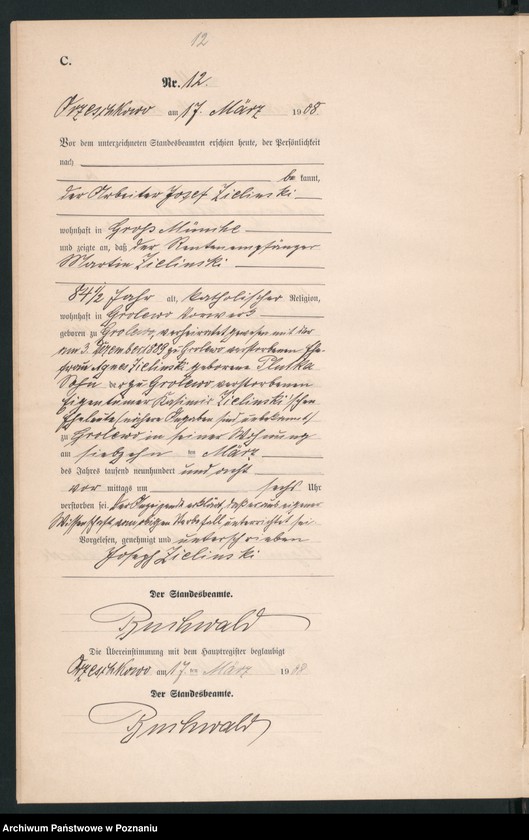 12
C.
Nr. 12.
Orzeschkowo am 17. März 1908
Vor dem unterzeichneten Standesbeamten erschien heute, der Persönlichkeit
nach
be kannt,
der Arbeiter Josef Zielinski
wohnhaft in Groß Münche
und zeigte an, daß der Rentenempfänger
Martin Zielinski
84 1/2 Jahr alt, katholischer Religion,
wohnhaft in Grolewo Vorwerk
geboren zu Grolewo, verheiratet gewesen mit der
am 3. Dezember 1889 zu Grolewo verstorbenen Ehe-
frau Agnes Zielinski geborene
Sohn der zu Grolewo verstorbenen
Eigentümer Kasimir Zielinski'schen
Eheleute (nähere Angaben sind unbekannt)
zu Grolewo in seiner Wohnung
am siebzehn ten März
des Jahres tausend neunhundert und acht
vor mittags um sechs Uhr
verstorben sei. Der Anzeigende erklärt, daß er aus eigener
Wissenschaft von obigen Sterbefall unterrichtet sei
Vorgelesen, genehmigt und unterschrieben
Joseph Zielinski
Der Standesbeamte.
Buchwald
Die Übereinstimmung mit dem Hauptregister beglaubigt
Orzeschkowo am 17. ten März 1908
Der Standesbeamte.
Buchwald
Archiwum Państwowe w Poznaniu